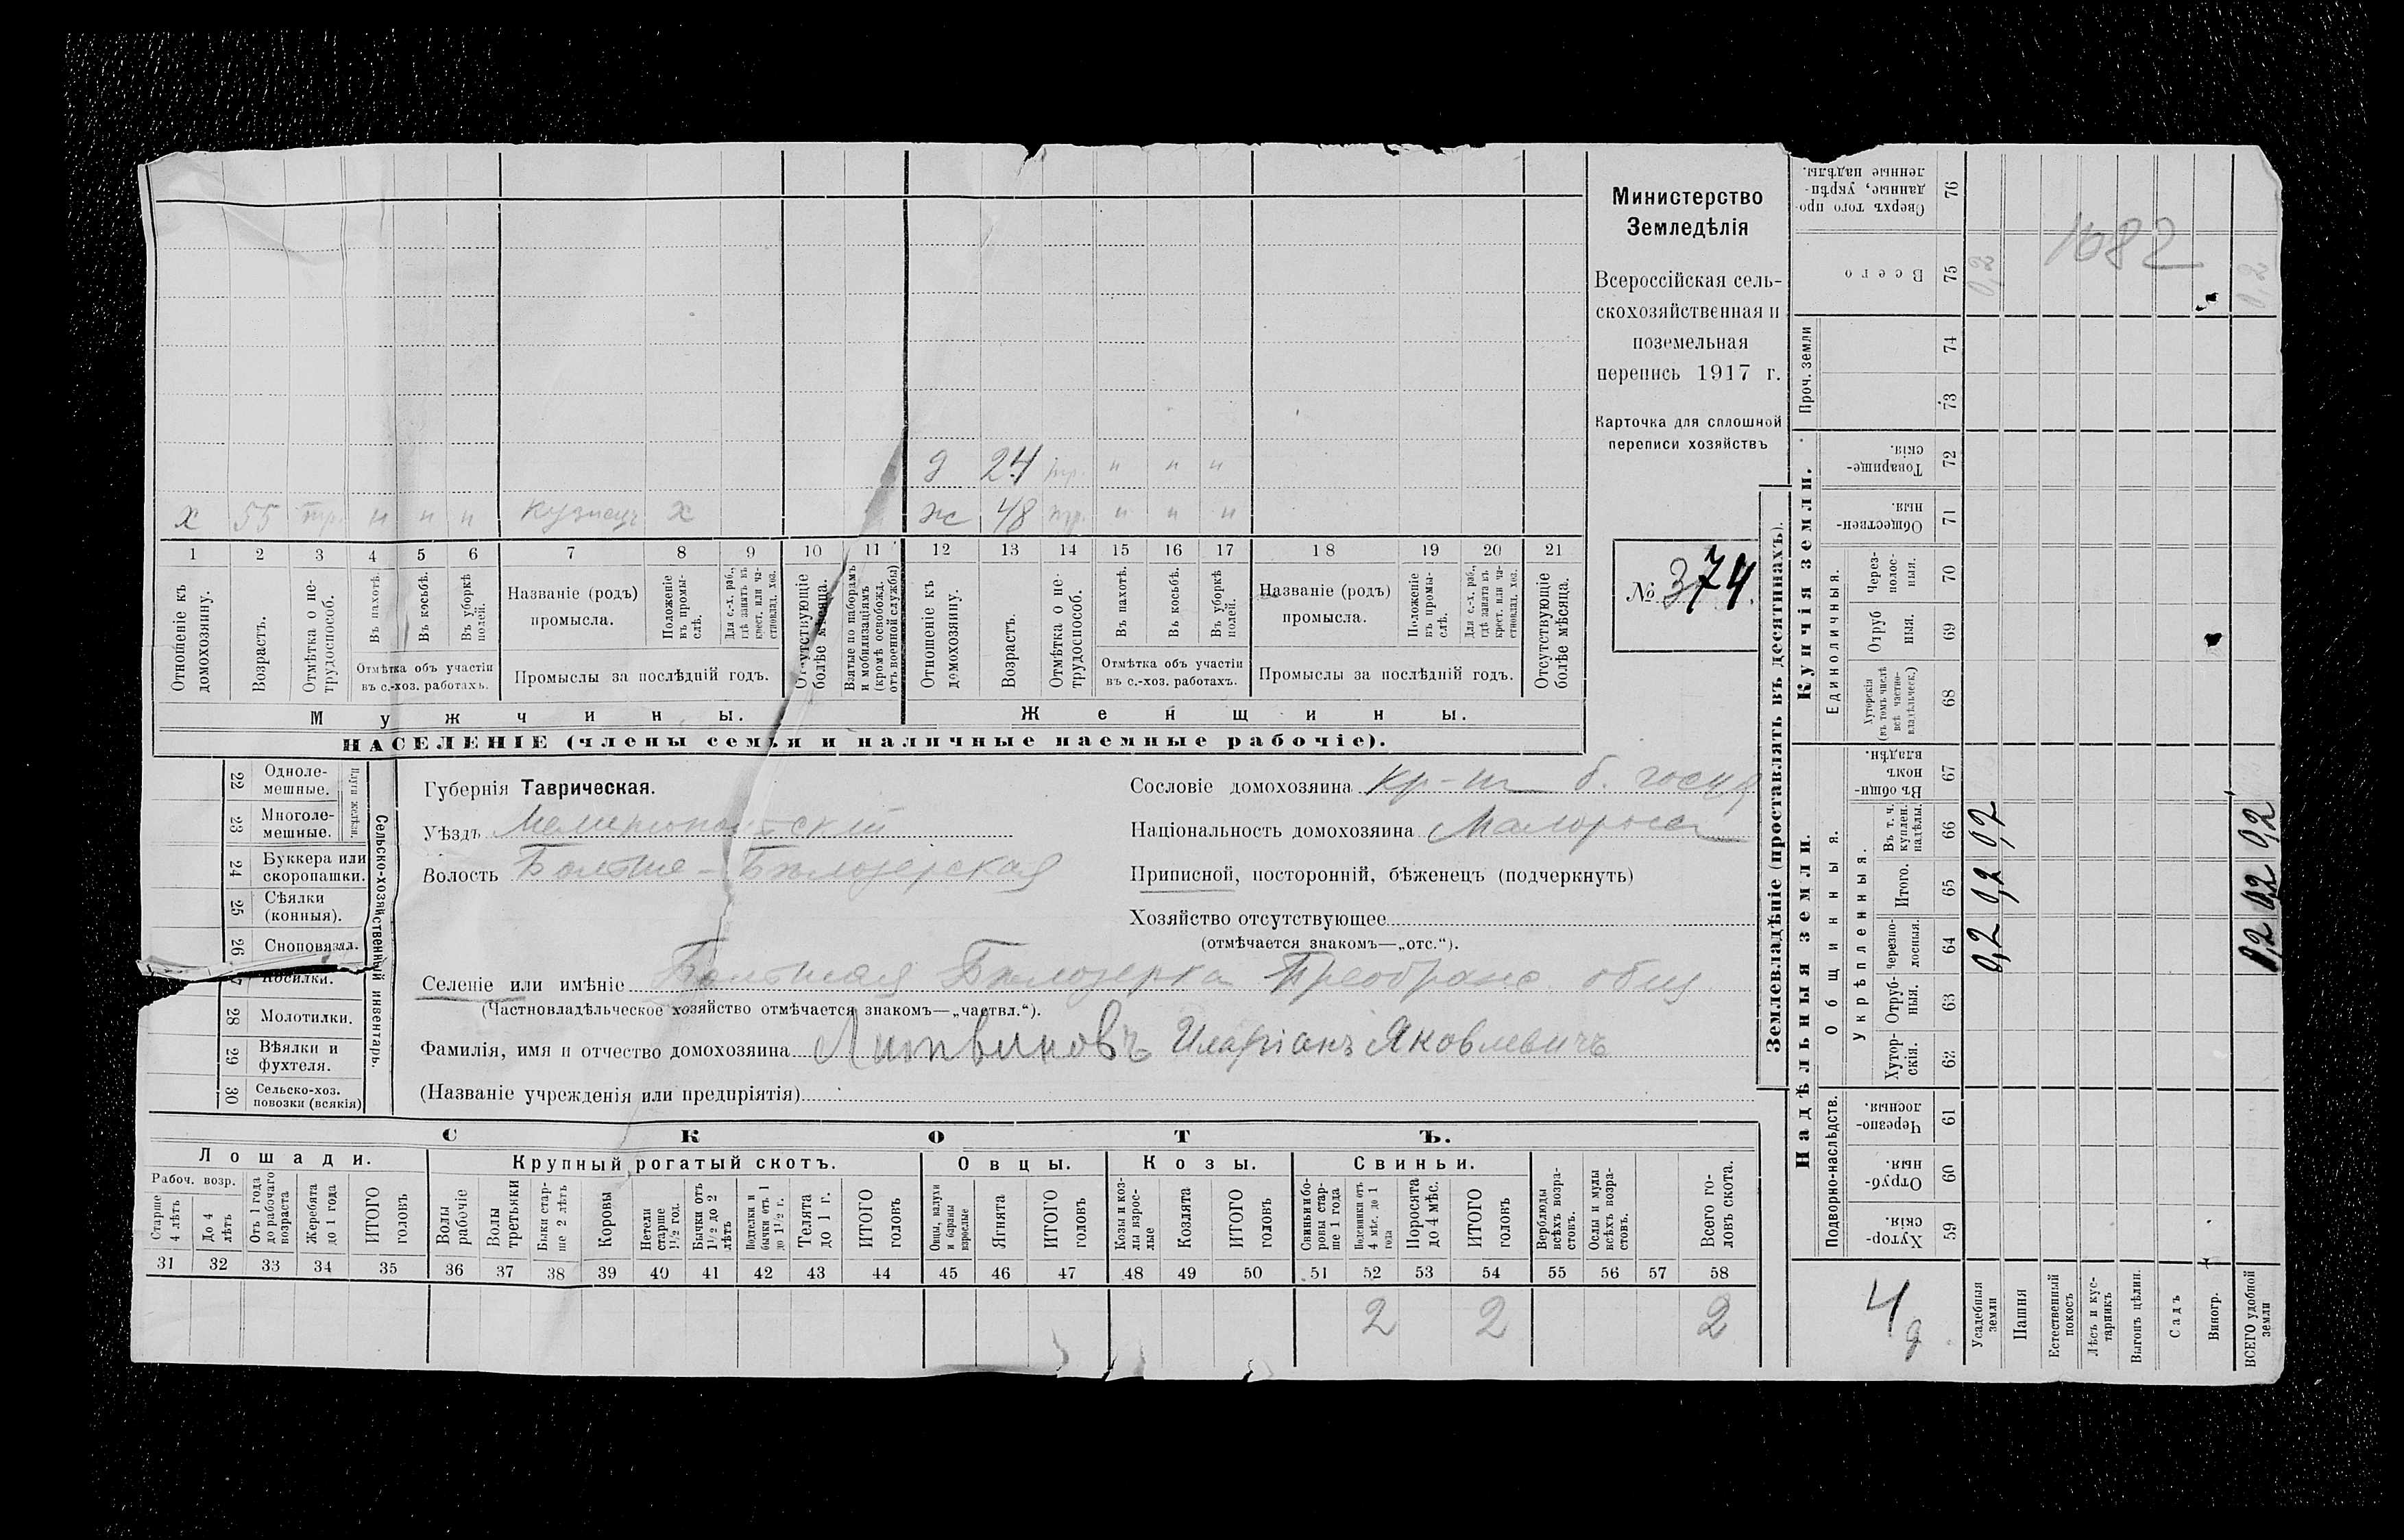 д 24 тр. " " "
х 55 тр. " " " кузнецъ х ж 48 тр. " " "
1 2 3 4 5 6 7 8 9 10 11 12 13 14 15 16 17 18 19 20 21
Отношеніе къ домохозяину.
Возрастъ.
Отмѣтка о нетрудоспособ.
Въ пахотѣ.
Въ косьбѣ.
Въ уборкѣ полей.
Отмѣтка объ участіи
въ с.-хоз. работахъ.
Названіе (родъ)
промысла.
Положеніе въ промыслѣ.
Для с.-х. раб., гдѣ занятъ въ крест. или частновлад. хоз.
Промыслы за послѣдній годъ.
Отсутствующіе болѣе мѣсяца.
Взятые по наборамъ и мобилизаціямъ (кромѣ освобожд. отъ военной службы)
Отношеніе къ домохозяину.
Возрастъ.
Отмѣтка о нетрудоспособ.
Въ пахотѣ.
Въ косьбѣ.
Въ уборкѣ полей.
Отмѣтка объ участіи
въ с.-хоз. работахъ.
Названіе (родъ)
промысла.
Положеніе въ промыслѣ.
Для с.-х. раб., гдѣ занята въ крест. или частновлад. хоз.
Промыслы за послѣдній годъ.
Отсутствующіе болѣе мѣсяца.
Мужчины.
Женщины.
НАСЕЛЕНІЕ (члены семьи и наличные наемные рабочіе).
Министерство
Земледѣлія
Всероссійская сель-
скохозяйственная и
поземельная
перепись 1917 г.
Карточка для сплошной
переписи хозяйствъ
№ 374.
22 Одноле-
мешные.
23 Многоле-
мешные.
Плуги желѣзн.
24 Буккера или
скоропашки.
25 Сѣялки
(конныя).
26 Сноповязал.
27 Косилки.
28 Молотилки.
29 Вѣялки и
фухтеля.
30 Сельско-хоз.
повозки (всякія)
Сельско-хозяйственный инвентарь.
Губернія Таврическая.
Уѣздъ Мелитопольскій
Волость Больше-Бѣлозерская
Сословіе домохозяина кр-нъ б. госуд
Національность домохозяина Малороссъ
Приписной, посторонній, бѣженецъ (подчеркнуть)
Хозяйство отсутствующее
(отмѣчается знакомъ—„отс.“).
Селеніе или имѣніе Большая Бѣлозерка Преображ. общ
(Частновладѣльческое хозяйство отмѣчается знакомъ—„частвл.“).
Фамилія, имя и отчество домохозяина Литвиновъ Иларіонъ Яковлевичъ
(Названіе учрежденія или предпріятія)
СКОТЪ.
Лошади.
Крупный рогатый скотъ.
Овцы.
Козы.
Свиньи.
Рабоч. возр.
Старше 4 лѣтъ
До 4 лѣтъ
Отъ 1 года до рабочаго возраста
Жеребята до 1 года
ИТОГО головъ
Волы рабочіе
Волы третьяки
Быки старше 2 лѣтъ
Коровы
Нетели старше 1½ год.
Бычки отъ 1½ до 2 лѣтъ
Подтелки и бычки отъ 1 до 1½ г.
Телята до 1 г.
ИТОГО головъ
Овцы, валухи и бараны взрослые
Ягнята
ИТОГО головъ
Козы и козлы взрослые
Козлята
ИТОГО головъ
Свиньи и боровы старше 1 года
Подсвинки отъ 4 мѣс. до 1 года
Поросята до 4 мѣс.
ИТОГО головъ
Верблюды всѣхъ возрастовъ.
Ослы и мулы всѣхъ возрастовъ.
Всего головъ скота.
31 32 33 34 35 36 37 38 39 40 41 42 43 44 45 46 47 48 49 50 51 52 53 54 55 56 57 58
2 2 2
Землевладѣніе (проставлять въ десятинахъ).
Надѣльныя земли.
Купчія земли.
Проч. земли
Подворно-наслѣдств.
Общинныя.
Укрѣпленныя.
Единоличныя.
Хуторскія. 59
Отрубныя. 60
Черезполосныя. 61
Хуторскія. 62
Отрубныя. 63
Черезполосныя. 64
Итого. 65
Въ т. ч. куплен. надѣлы. 66
Въ общинномъ владѣн. 67
Хуторскія (въ томъ числѣ всѣ частновладѣльческ.) 68
Отрубныя. 69
Черезполосныя. 70
Общественныя. 71
Товарищескія. 72
73
74
Всего 75
Сверхъ того проданные, укрѣпленные надѣлы. 76
Усадебныя земли 0,2 0,2 0,2 0,2
Пашня
Естественный покосъ
Лѣсъ и кустарникъ
Выгонъ цѣлин.
Садъ
Виногр.
ВСЕГО удобной земли 0,2 0,2 0,2 0,2
1682
4
д